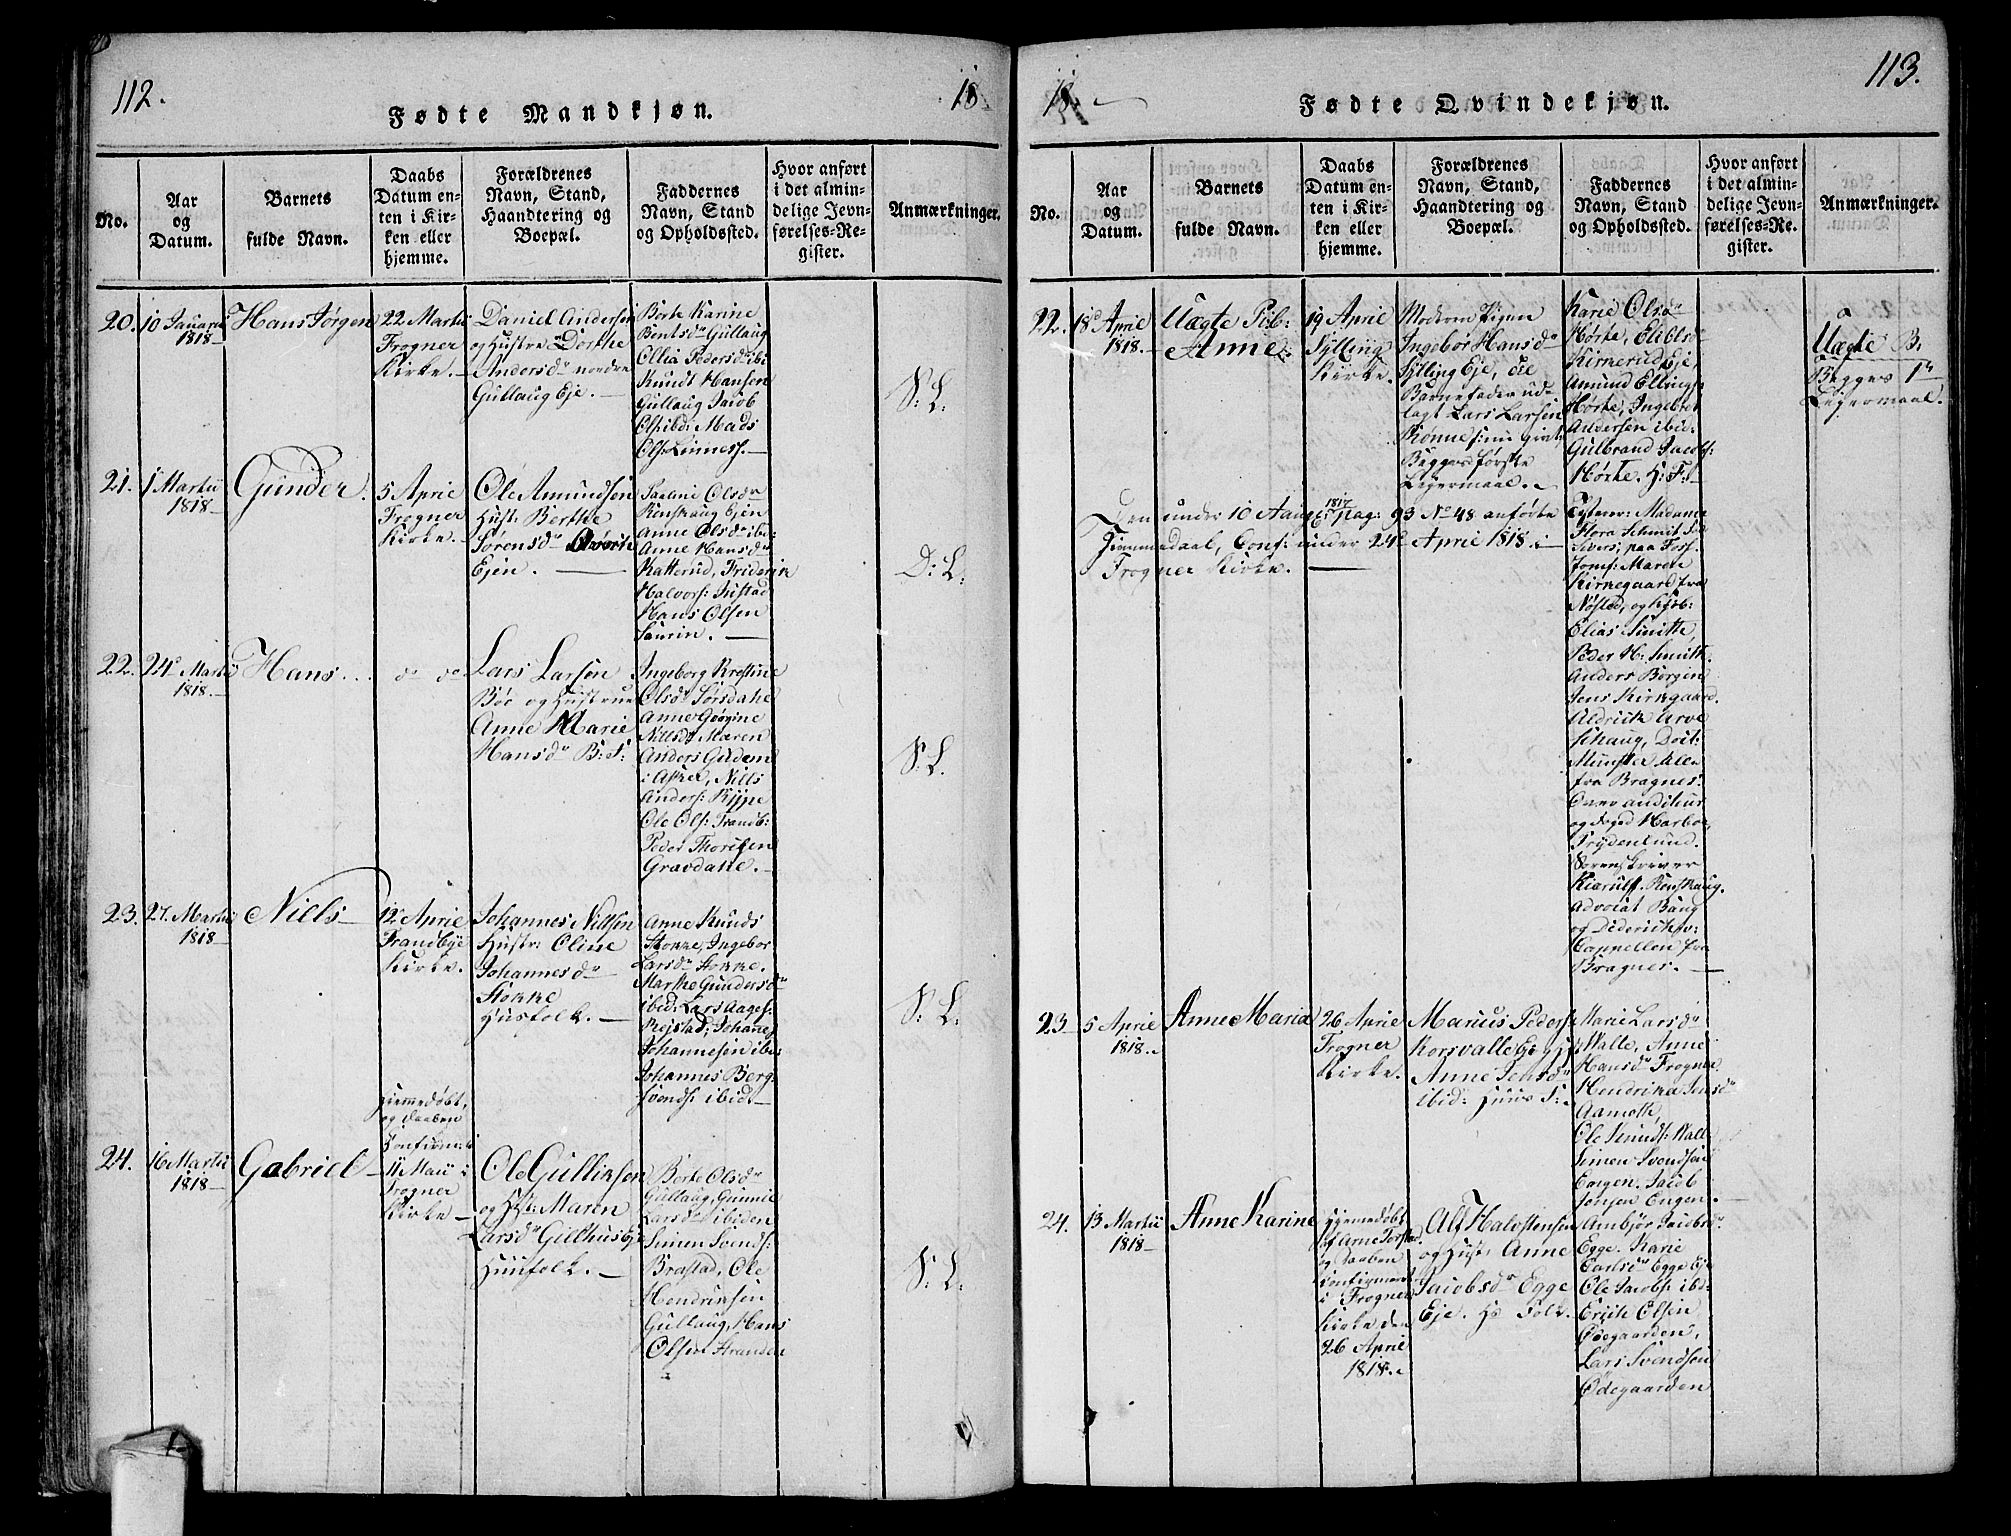 112.
18
Fødte Mandkjøn.
No.
Aar
og
Datum.
Barnets
fulde Navn.
Daabs
Datum en-
ten i Kir-
ken eller
hjemme.
Forældrenes
Navn, Stand,
Haandtering og
Boepæl.
Faddernes
Navn, Stand
og Opholdssted.
Hvor anført
i det almin-
delige Jevn-
førelses-Re-
gister.
Anmærkninger.
20.
10 Januar
1818
Hans Jørgen
22 Martii
Frogner
Kirke.
Daniel Andersen
og Hustrue Dorthe
Andersdr nordre
Gullaug Eje.
Børte Karine
Bentsdr Gullaug
Ollia Pedersdr ibi
Knudt Hansen
Gullaug Jacob
Ols: ibd: Mads
Ols: Linnes.
S: L:
21.
1 Martii
1818
Gunder.
5 Aprie
Frogner
Kirke.
Ole Amundsen
Hust: Berthe
Sørensdr
Ejen.
Olsdr
Renskaug Ejen
Anne Olsdr ibi:
Anne Hansdr
Katterud, Friderik
Halvors: Justad
Hans Olsen
D: L:
22.
24 Martii
1818
Hans
do do
Lars Larsen
Bøe og Hustrue
Anne Marie
Hansdr B: F:
Ingeborg Kristine
Olsdr Sørsdahl
Anne Georgine
Nillsdr Maren
Anders Guldem
i Asker, Nills
Anders: Kype
Ole Ols: Trandb:
Peder Thorsen
Gravdahl.
S: L.
23.
27. Martii
1818
Niels
12 Aprie
Frandbye
Kirke.
Johannes Nillsen
Hustr: Oline
Johannesdr
Stokke
Husfolk.
Anne Knuds
Stokke, Ingebor
Larsdr Stokke.
Marthe Gundersdr
ibid: Lars Aages:
Rejstad, Johanes
Johannesen ibid:
Johannes Berg
Svends: ibid.
S: L:
24.
16 Martii
1818
Gabriel
Hjemmedøbt,
og Daaben
Confirmeret
11 Maii i
Frogner
Kirke
Ole Gulliksen
og Hst: Maren
Larsdr Gillhusbye
Huusfolk.
Børte Olsdr
Gullaug, Gunnie
Larsdr ibiden
Simen Svends:
Brastad, Ole
Hendriksen
Gullaug, Hans
Olsen Stranden
S: L:
113.
18
Fødte Qvindekjøn.
No.
Aar
og
Datum.
Barnets
fulde Navn.
Daabs
Datum en-
ten i Kir-
ken eller
hjemme.
Forældrenes
Navn, Stand,
Haandtering og
Boepæl.
Faddernes
Navn, Stand
og Opholdssted.
Hvor anført
i det almin-
delige Jevn-
førelses-Re-
gister.
Anmærkninger.
22.
18 Aprie
1818.
Uægte Pib:
Anne
19 Aprie
Sylling
Kirke.
Moderen Pigen
Ingebor Hansdr
Sylling Eje, til
Barnefader ud-
lagt Lars Larsen
Rønne
Begges første
Lejermaal.
Karie Olsdr
Hørte,
Kirkerud Eje,
Amund Ellings
Hørte, Ingebret
Andersen ibid:
Gulbrand Jacobs:
Hørte. H: F:
Uægte B,
Begges 1te
Lejermaal.
Den under 10 Aaug: 1817 Pag: 93 No 48 anførte
Timmedaab, Conf: under 24 Aprie 1818 i
Frogner Kirke.
Madame
Flora Schmit
Sivers; paa Foss.
Jomf: Maren
Kirkegaard fra
Nøsted, og Kjøb:
Elias Smitte,
Peder H: Smith.
Anders Børgen
Jens Kirkgaard.
Aldrick Arve
Schaug, Doct:
Munster
fra Bragnes.
Over auditeur
og foged Harboe,
Frydenlund.
Sorenskriver
Kiærulf. Renskaug.
Advocat Bang
og Diderick v:
Cappellen fra
Bragnes.
23
5 Aprie
1818.
Anne Maria
26 Aprie
Frogner
Kirke.
Marcus Peders:
Korsvalle Eje
Anne Jensdr
ibid: Huus F:
Marie Larsdr
Walle, Anne
Hansdr Frogner
Hendrika Jensdr
Aamoth,
Ole Knuds: Wall
Simen Svendsen
Engen. Jacob
Jonsen Engen.
24.
13 Martii
1818
Anne Karine
Hjemmedøbt
af Arne Torstad.
og Daaben
Confirmeret
i Frogner
Kirke den
26 Aprie
1818.
Alf Halvstensen
og Hust: Anne
Jacobsdr Egge
Eje. Hs Folk.
Ambjør Jacobsdr
Egge. Karie
Carlsdr Egge Ej
Ole Jacobs: ibd:
Erich Olsen
Ødegaarden,
Lars Svendsen
Ødegaarden